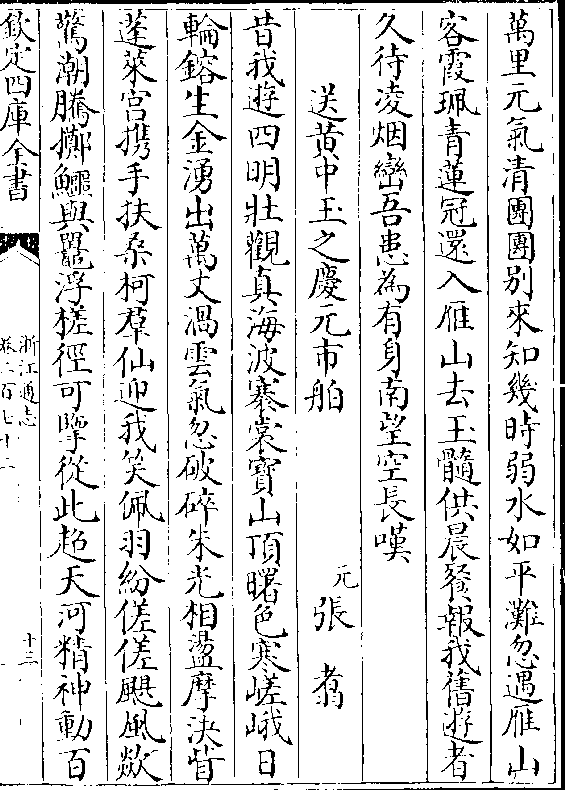 萬里元氣清團團别來知幾時弱水如平灘忽遇雁山
客霞珮青蓮冠還入雁山去玉髓供晨餐報我舊逰者
久待凌烟巒吾患為有身南望空長嘆
送黄中玉之慶元市舶
元張翥
昔我逰四明壯觀真海波褰裳寳山頂曙色寒嵯峨日
輪鎔生金湧出萬丈渦雲氣忽破碎朱光相盪摩決眥
蓬萊宫携手扶桑柯羣仙迎我笑佩羽紛傞傞颶風歘
驚潮騰擲鱷與鼉浮槎徑可擥從此超天河精神動百
欽定四庫全書
浙江通志
卷二百七十二
十三